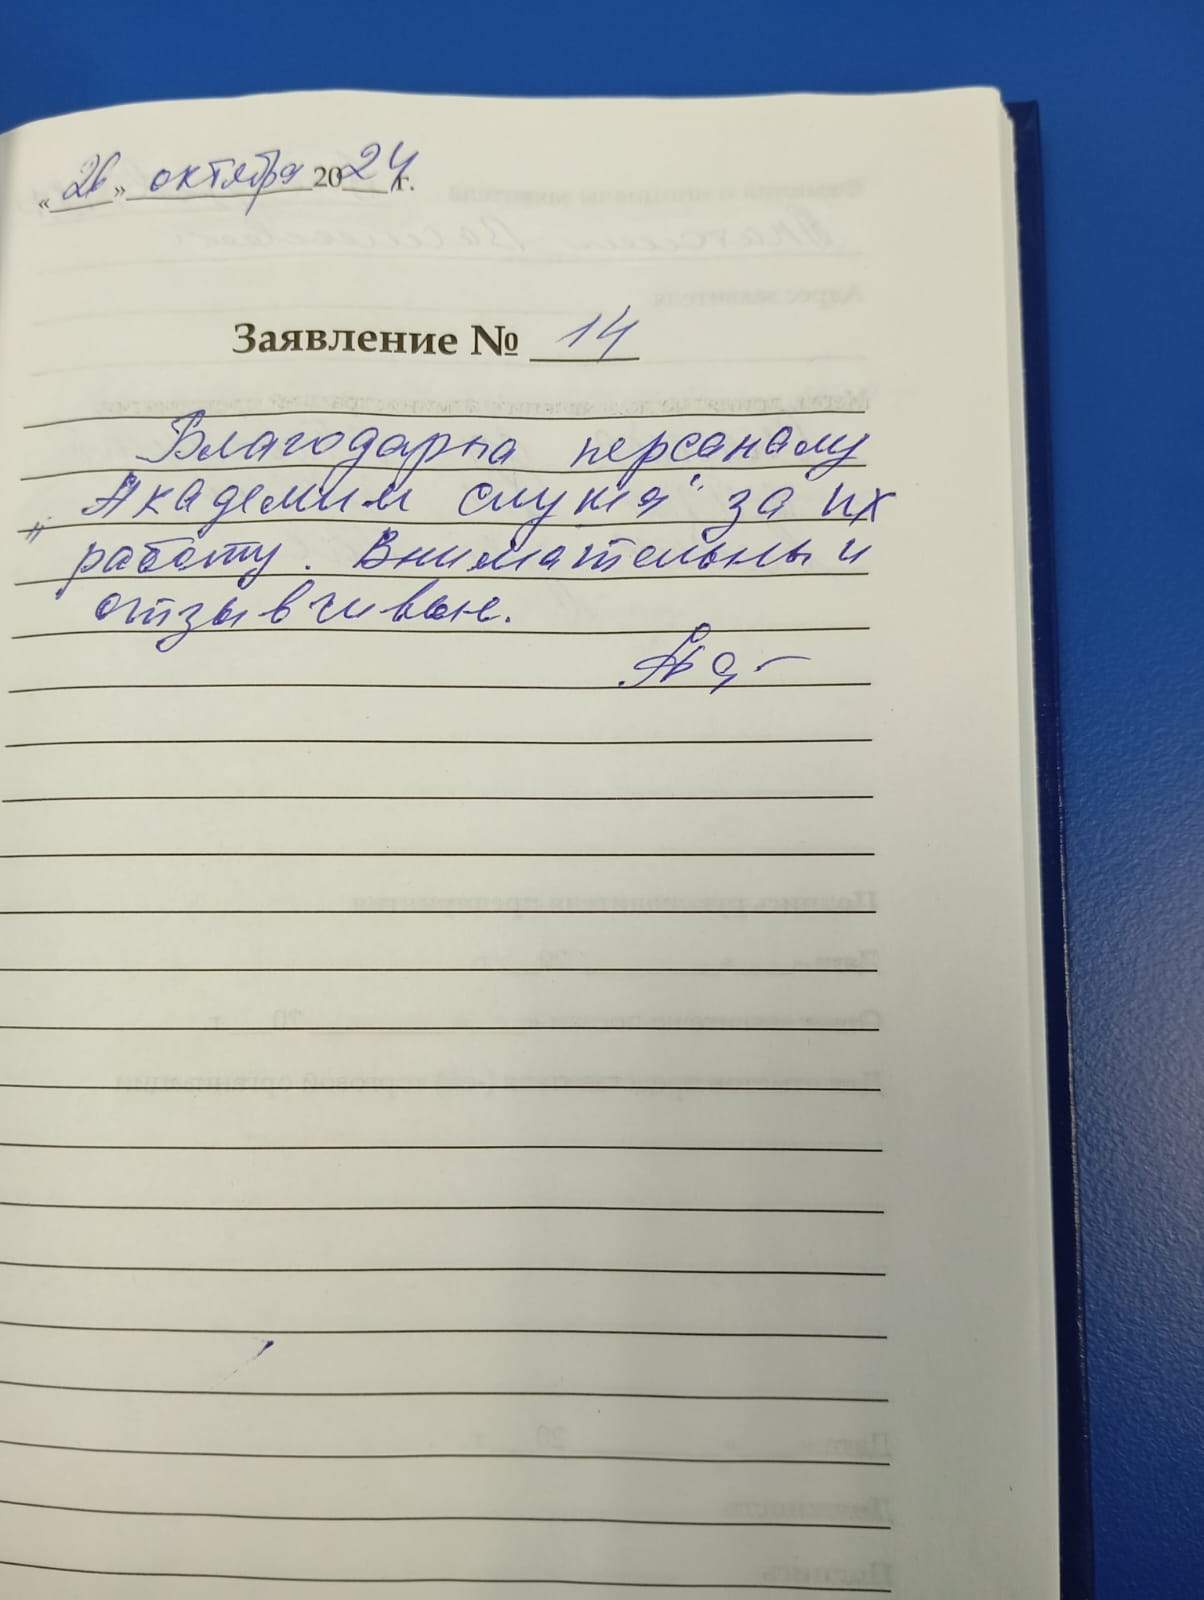 «26» октября 2024 г.
Заявление № 14
Благодарна персаналу
„Академии слуха" за их
работу. Внимательны и
отзывчивые.